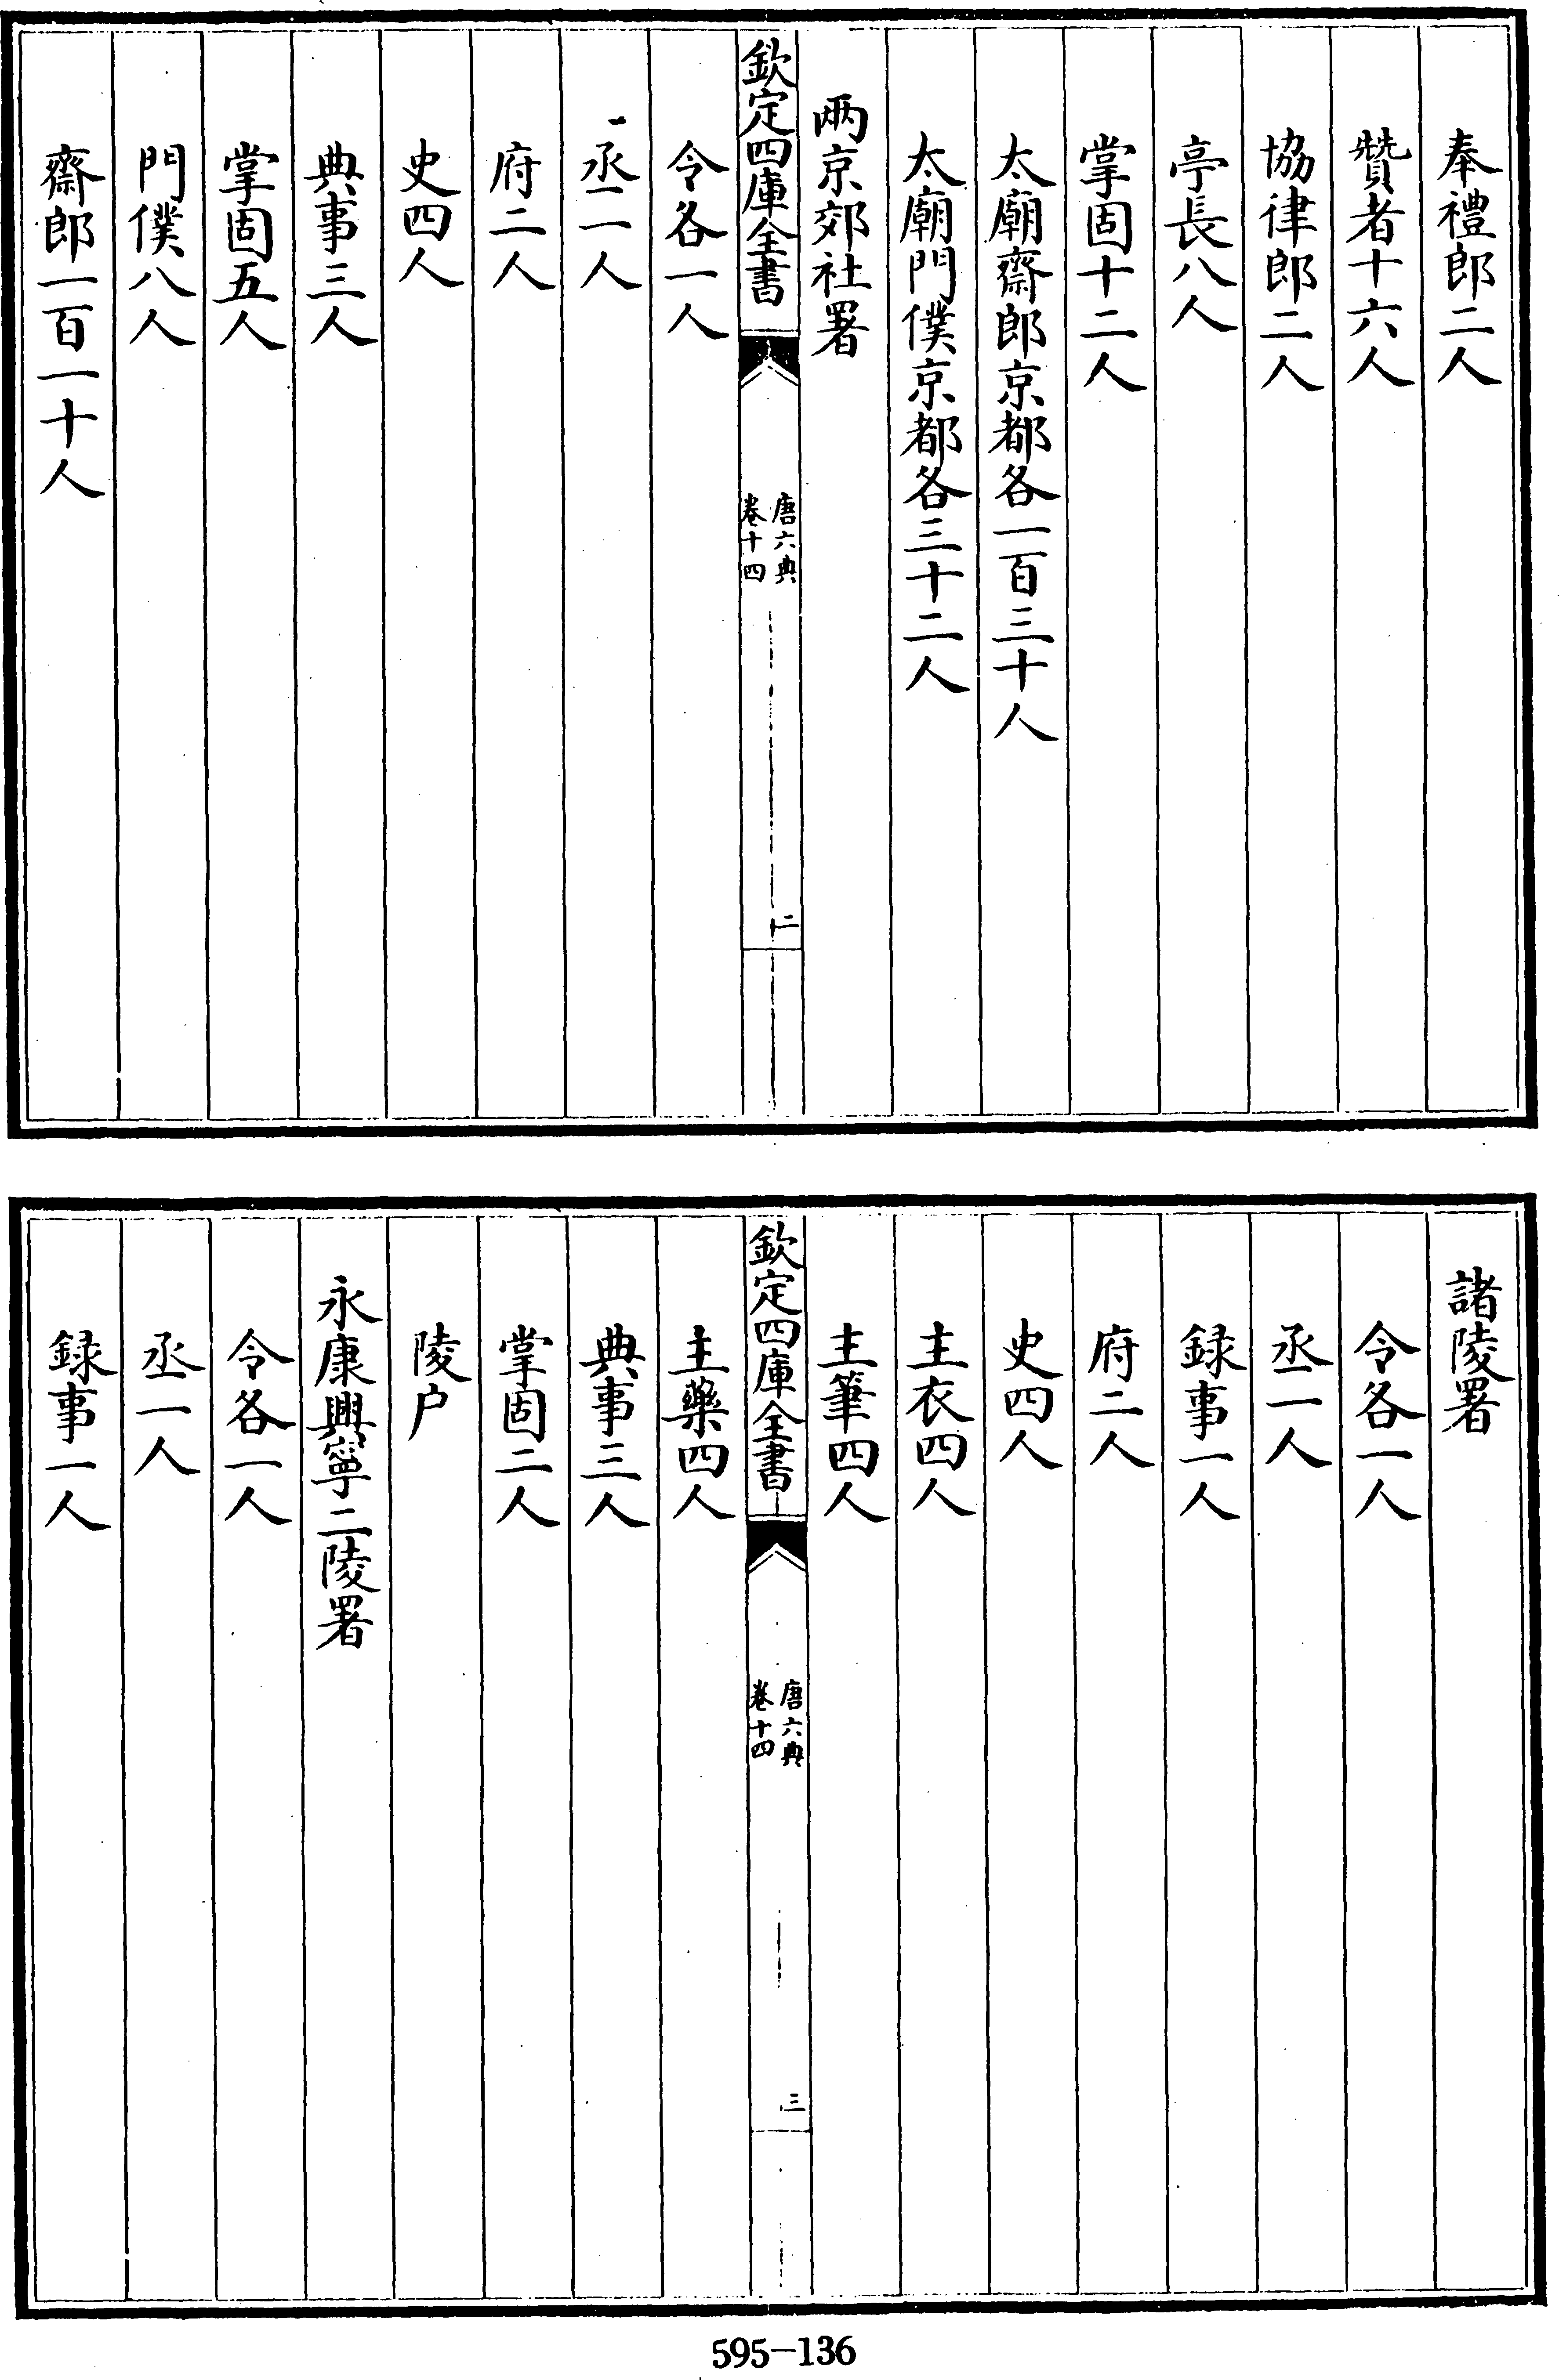 奉禮郎二人
贊者十六人
協律郎二人
亭長八人
掌固十二人
太廟齋郎京都各一百三十人
太廟門僕京都各三十二人
兩京郊社署
欽定四庫全書
唐六典
卷十四
二
令各一人
丞一人
府二人
史四人
典事三人
掌固五人
門僕八人
齋郎一百一十人
諸陵署
令各一人
丞一人
録事一人
府二人
史四人
主衣四人
主筆四人
欽定四庫全書
唐六典
卷十四
三
主藥四人
典事三人
掌固二人
陵户
永康興寧二陵署
令各一人
丞一人
録事一人
595-136